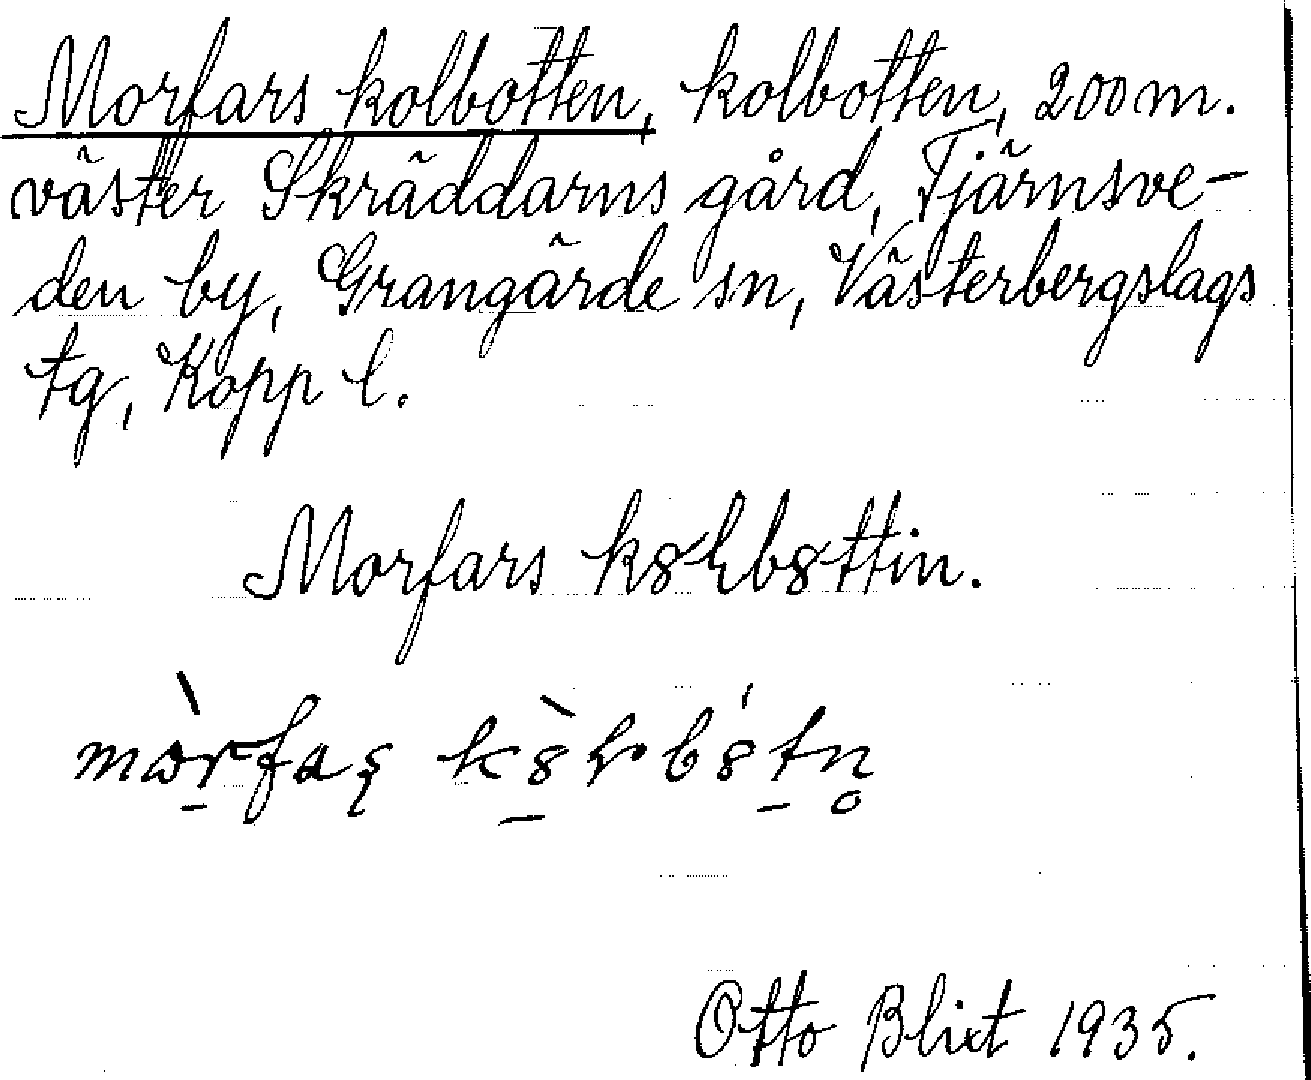 Morfars kolbotten, kolbotten, 200 m.
väster Skräddarns gård, Tjärnsve-
den by, Grangärde sn, Västerbergslags
tg, Kopp l.
Morfars
Otto Blixt 1935.